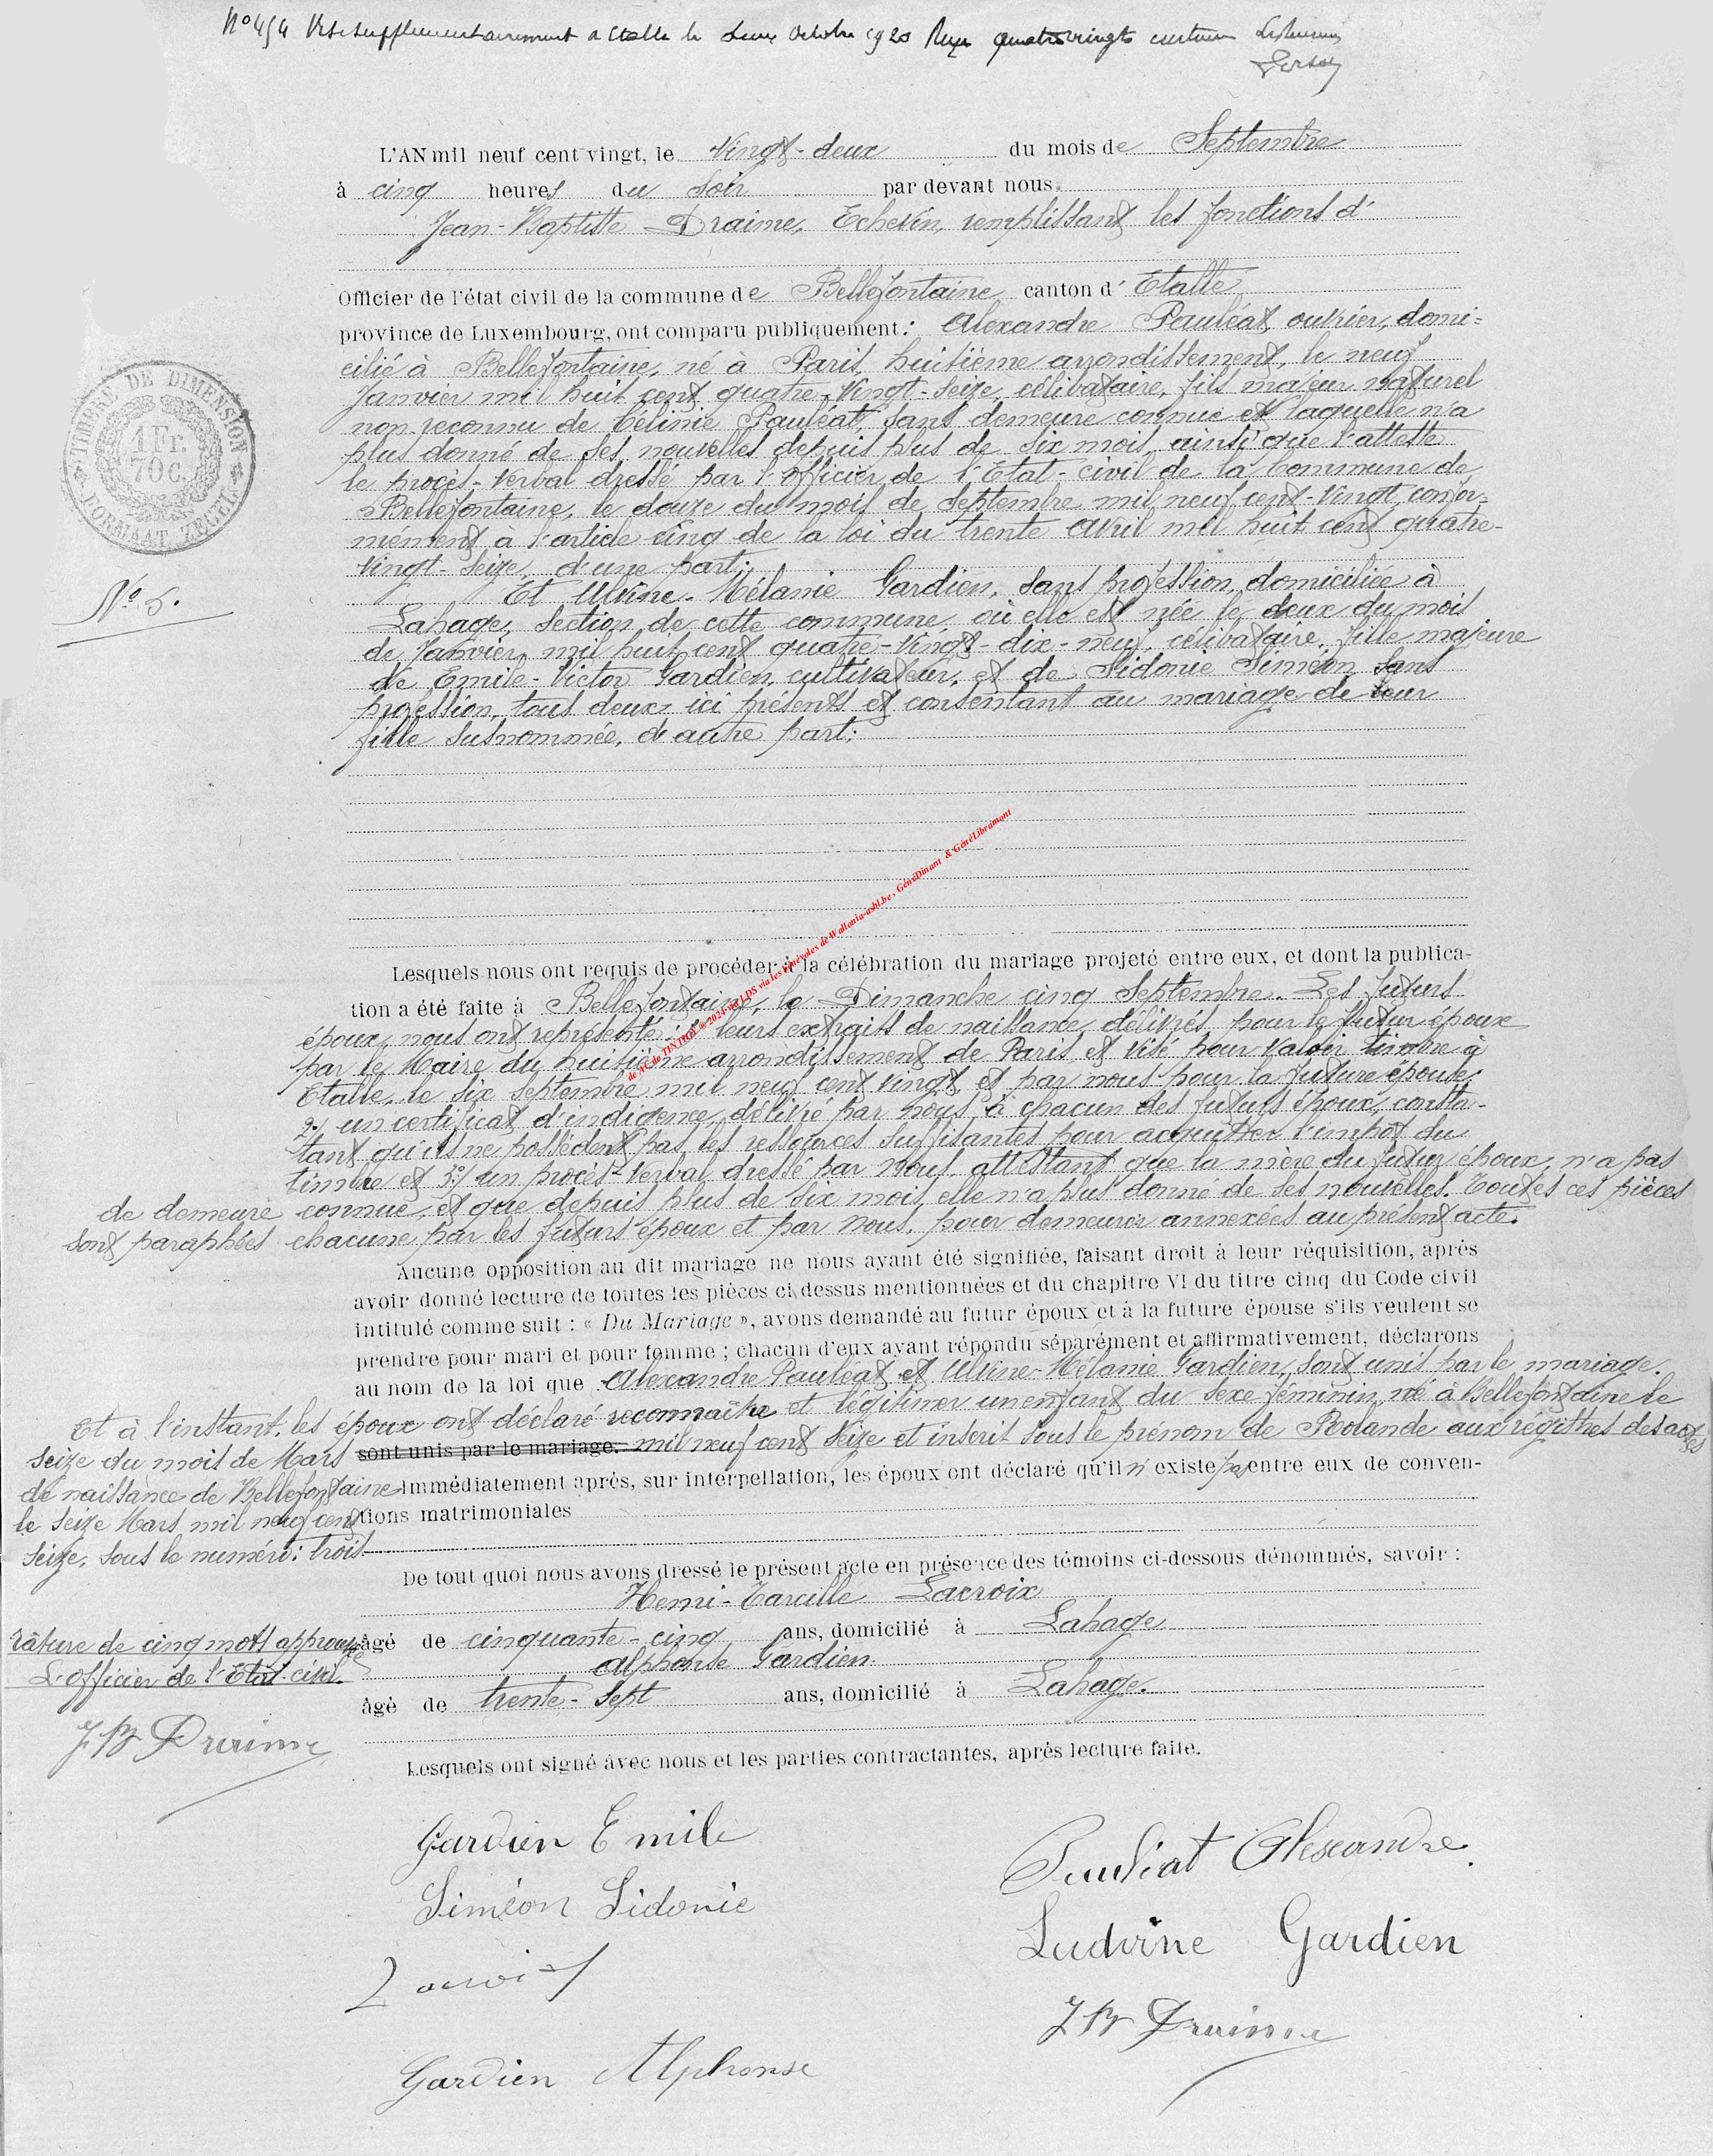 N° 454 Visé supplémentairement à Etalle le deux Octobre 1920 Reçu quatre vingts centimes
L'AN mil neuf cent vingt, le vingt-deux du mois de Septembre
à cinq heures du soir par devant nous
Jean-Baptiste Draime, Echevin, remplissant les fonctions d'
Officier de l'état civil de la commune de Bellefontaine canton d'Etalle
province de Luxembourg, ont comparu publiquement : Alexandre Pauléat, ouvrier, domi=
cilié à Bellefontaine, né à Paris, huitième arrondissement, le neuf
Janvier mil huit cent quatre-vingt-seize, célibataire, fils majeur naturel
non reconnu de Célinie Pauléat, sans demeure connue et laquelle n'a
plus donné de ses nouvelles depuis plus de six mois, ainsi que l'atteste
le procès-verbal dressé par l'officier de l'Etat-civil de la Commune de
Bellefontaine, le douze du mois de septembre mil neuf cent-vingt, confor=
mément à l'article cinq de la loi du trente avril mil huit cent quatre-
vingt-seize, d'une part;
TIMBRE DE DIMENSION
1 Fr.
70 c.
FORMAAT ZEGEL
N° 5.
Et Ulvine-Mélanie Gardien, sans profession, domiciliée à
Lahage, section de cette commune où elle est née le deux du mois
de Janvier mil huit cent quatre-vingt-dix-neuf, célibataire, fille majeure
de Emile-Victor Gardien, cultivateur, et de Sidonie Siméon sans
profession, tous deux ici présents et consentant au mariage de leur
fille susnommée, d'autre part;
de AE de TINTIGNY © 2024 via LDS via les bénévoles de Wallonia-asbl.be, GénéDinant & GénéLibramont
Lesquels nous ont requis de procéder à la célébration du mariage projeté entre eux, et dont la publica-
tion a été faite à Bellefontaine, le Dimanche cinq Septembre. Les futurs
époux nous ont représenté : 1° leurs extraits de naissance, délivrés pour le futur époux
par le Maire du huitième arrondissement de Paris et visé pour valoir timbre à
Etalle, le six septembre mil neuf cent vingt, et par nous pour la future épouse;
2°/ un certificat d'indigence, délivré par nous, à chacun des futurs époux, consta-
tant qu'ils ne possèdent pas les ressources suffisantes pour acquitter l'impôt du
timbre et 3°/ un procès-verbal dressé par nous attestant que la mère du futur époux, n'a pas
de demeure connue, et que depuis plus de six mois, elle n'a plus donné de ses nouvelles. Toutes ces pièces
sont paraphées chacune, par les futurs époux et par nous, pour demeurer annexées au présent acte.
Aucune opposition au dit mariage ne nous ayant été signifiée, faisant droit à leur réquisition, après
avoir donné lecture de toutes les pièces ci dessus mentionnées et du chapitre VI du titre cinq du Code civil
intitulé comme suit : « Du Mariage », avons demandé au futur époux et à la future épouse s'ils veulent se
prendre pour mari et pour femme ; chacun d'eux ayant répondu séparément et affirmativement, déclarons
au nom de la loi que Alexandre Pauléat et Ulvine-Mélanie Gardien, sont unis par le mariage.
Et à l'instant, les époux ont déclaré reconnaître et légitimer un enfant du sexe féminin, né à Bellefontaine le
seize du mois de Mars sont unis par le mariage. mil neuf cent seize et inscrit sous le prénom de Rolande aux registres des actes
de naissance de Bellefontaine Immédiatement après, sur interpellation, les époux ont déclaré qu'il n'existe pas entre eux de conven-
le seize Mars mil neuf cent tions matrimoniales
seize, sous le numéro : trois
De tout quoi nous avons dressé le présent acte en présence des témoins ci-dessous dénommés, savoir :
Henri-Tarcille Lacroix
âgé de cinquante-cinq ans, domicilié à Lahage
Alphonse Gardien
âgé de trente-sept ans, domicilié à Lahage.
Râture de cinq mots approuvée
L'officier de l'Etat-civil.
JB Draime
Lesquels ont signé avec nous et les parties contractantes, après lecture faite.
Gardien Emile
Pauliat Alexandre
Siméon Sidonie
Ludvine Gardien
Lacroix
JB Draime
Gardien Alphonse